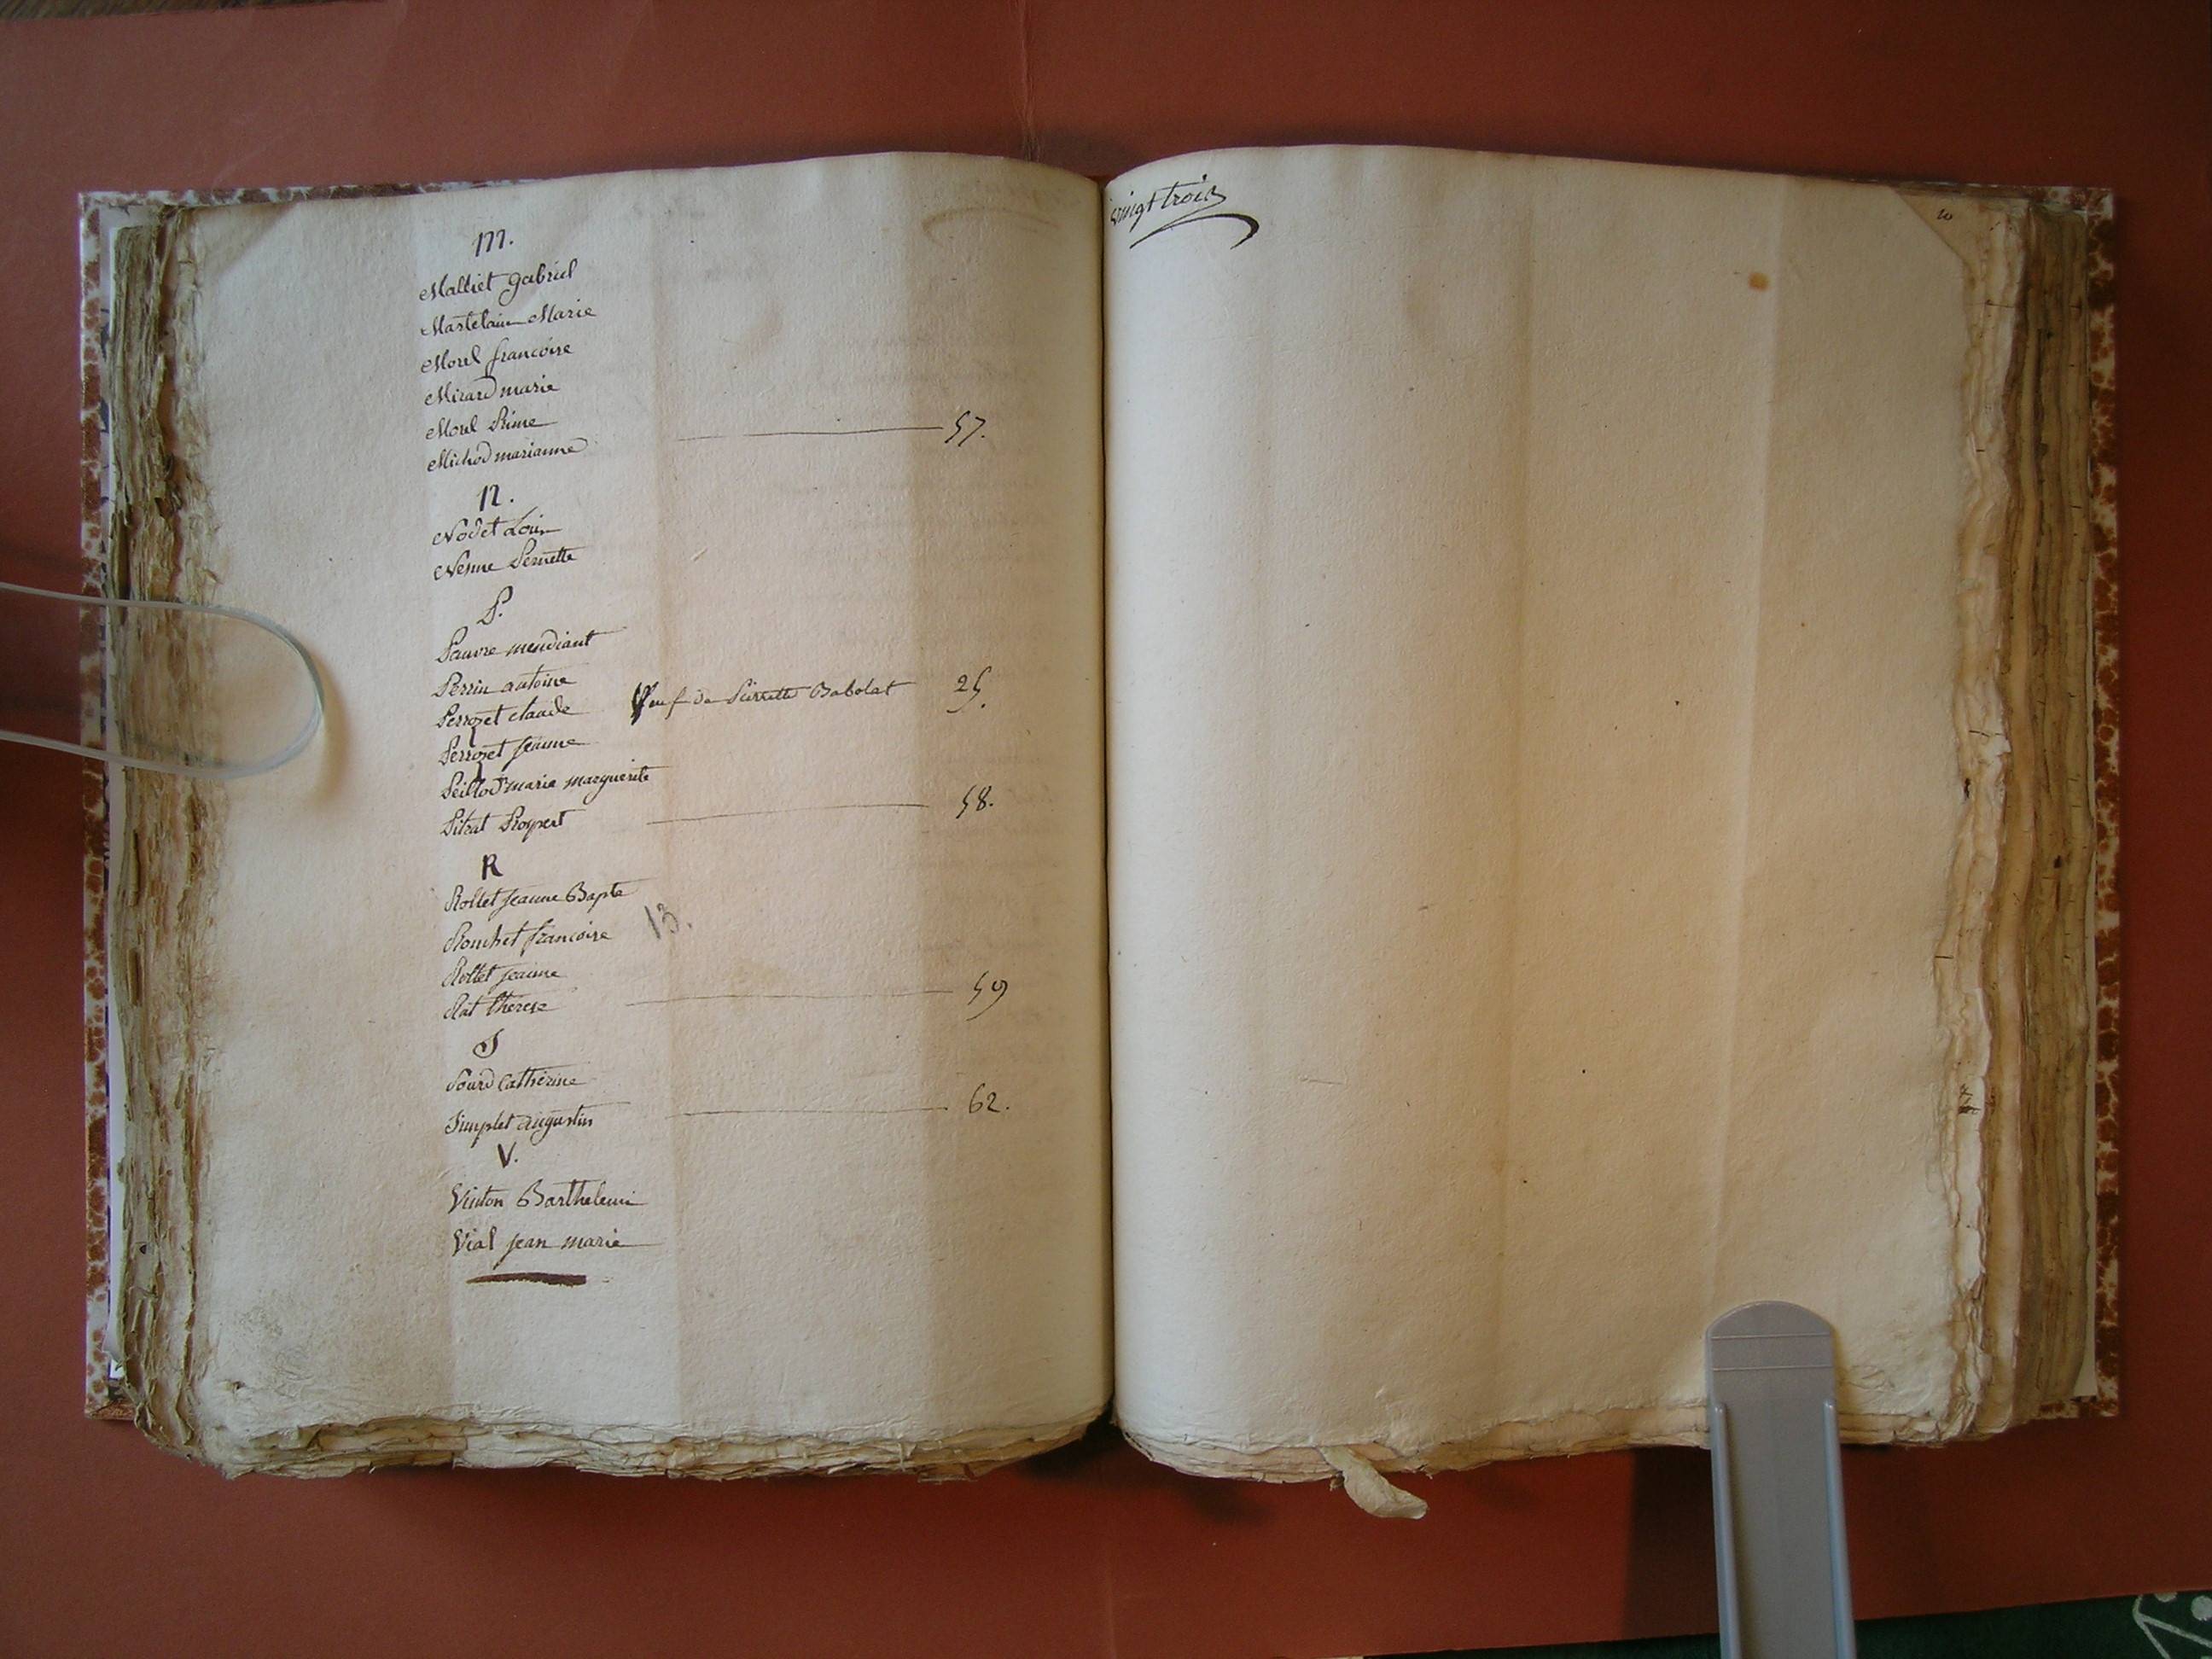 M.
Malliet gabriel
Mastelain Marie
Morel francoise
Mirard marie
Morel Prime 57.
Michod marianne
N.
Nodet Louis
Nesme Pernette
P.
Pauvre mendiant
Perrin antoine
Perrozet claude Veuf de Pierrette Babolat 25.
Perrozet jeanne
Peillod marie marguerite
Pitrat Prospert 58.
R
Rollet jeanne Bapte
Rouchet francoise 13.
Rollet jeanne
Rat therese 59
S
Sourd Catherine
Simplet augustin 62.
V.
Vinton Barthelemi
Vial jean marie
vingt trois